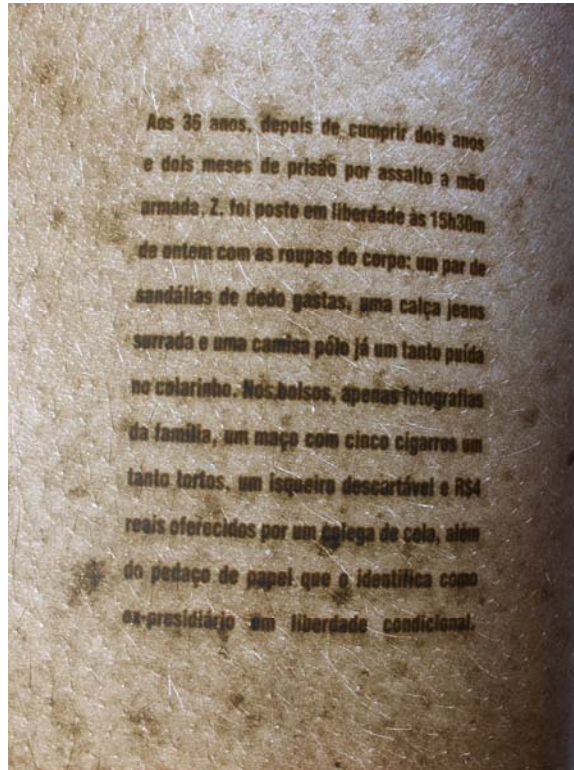 Aos 36 anos, depois de cumprir dois anos
e dois meses de prisão por assalto a mão
armada, Z. foi posto em liberdade às 15h30m
de ontem com as roupas do corpo: um par de
sandálias de dedo gastas, uma calça jeans
surrada e uma camisa pólo já um tanto puída
no colarinho. Nos bolsos, apenas fotografias
da família, um maço com cinco cigarros um
tanto tortos, um isqueiro descartável e R$4
reais oferecidos por um colega de cela, além
do pedaço de papel que o identifica como
ex-presidiário em liberdade condicional.